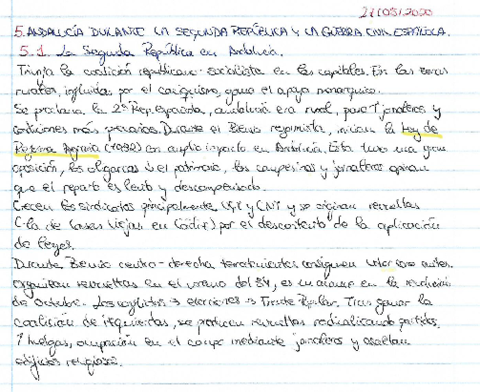 21/05/2020
5. ANDALUCÍA DURANTE LA SEGUNDA REPÚBLICA Y LA GUERRA CIVIL ESPAÑOLA.
5.1. La Segunda República en Andalucía.
Triunfa la coalición republicano-socialista en las capitales. En las zonas
rurales, influidas por el caciquismo, gana el apoyo monárquico.
Se proclama la 2ª Rep. española, Andalucía era rural, para jornaleros y
condiciones más precarias. Durante el Bienio reformista, inician la Ley de
Reforma Agraria (1932) con amplio impacto en Andalucía. Esta tuvo una gran
oposición, los oligarcas el patrimonio, los campesinos y jornaleros opinan
que el reparto es lento y descompensado.
Crecen los sindicatos principalmente UGT y CNT y se originan revueltas
(la de Casas Viejas en Cádiz) por el descontento de la aplicación
de leyes.
Durante Bienio centro-derecha terratenientes consiguen antes.
Organizan revueltas en el verano del 34, en la revolución
de Octubre. → elecciones → Frente Popular. Tras ganar la
coalición de izquierdas, se producen revueltas radicalizando partidos.
huelgas, ocupación en el campo mediante jornaleros y asaltan
edificios religiosos.